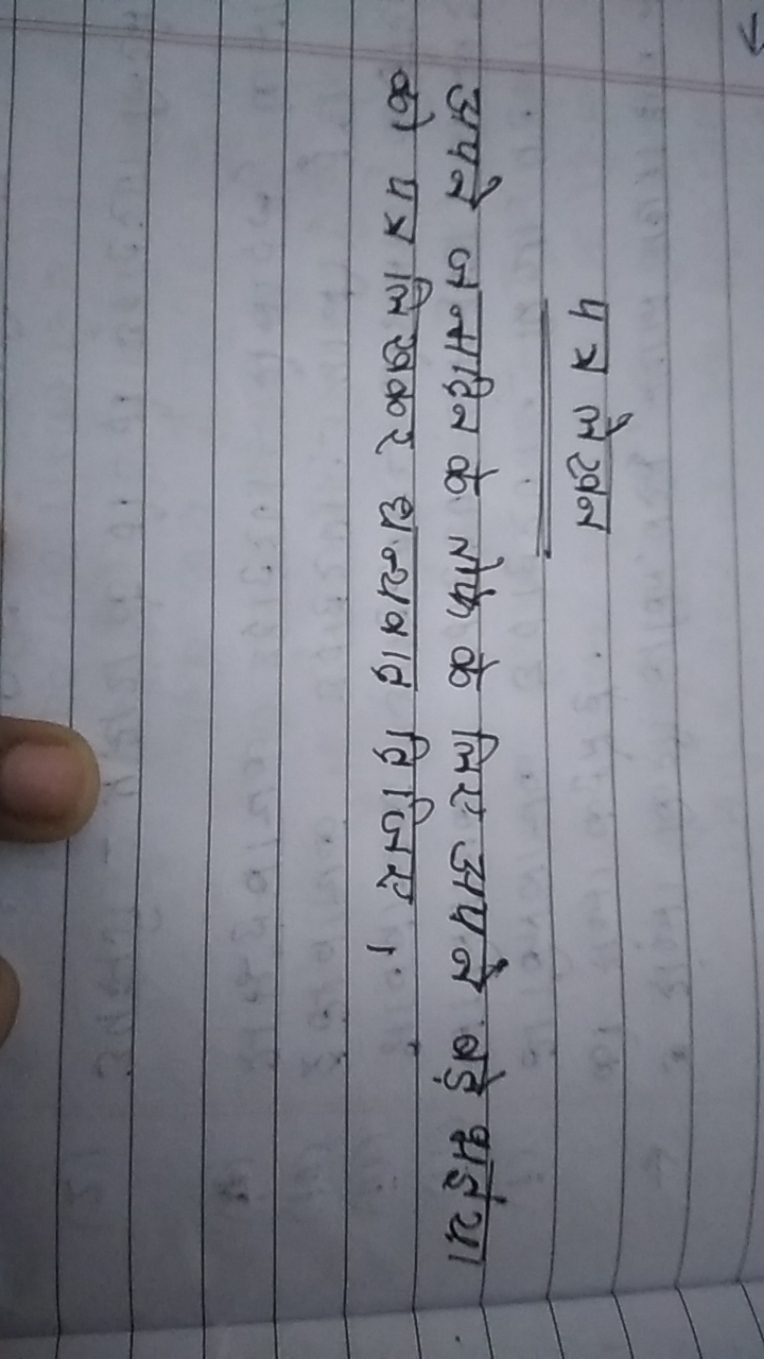 पत्र लेखन
अपने जन्मदिन के तोफे के लिए अपने बड़े भईया
को पत्र लिखकर धन्यवाद दिजिए,